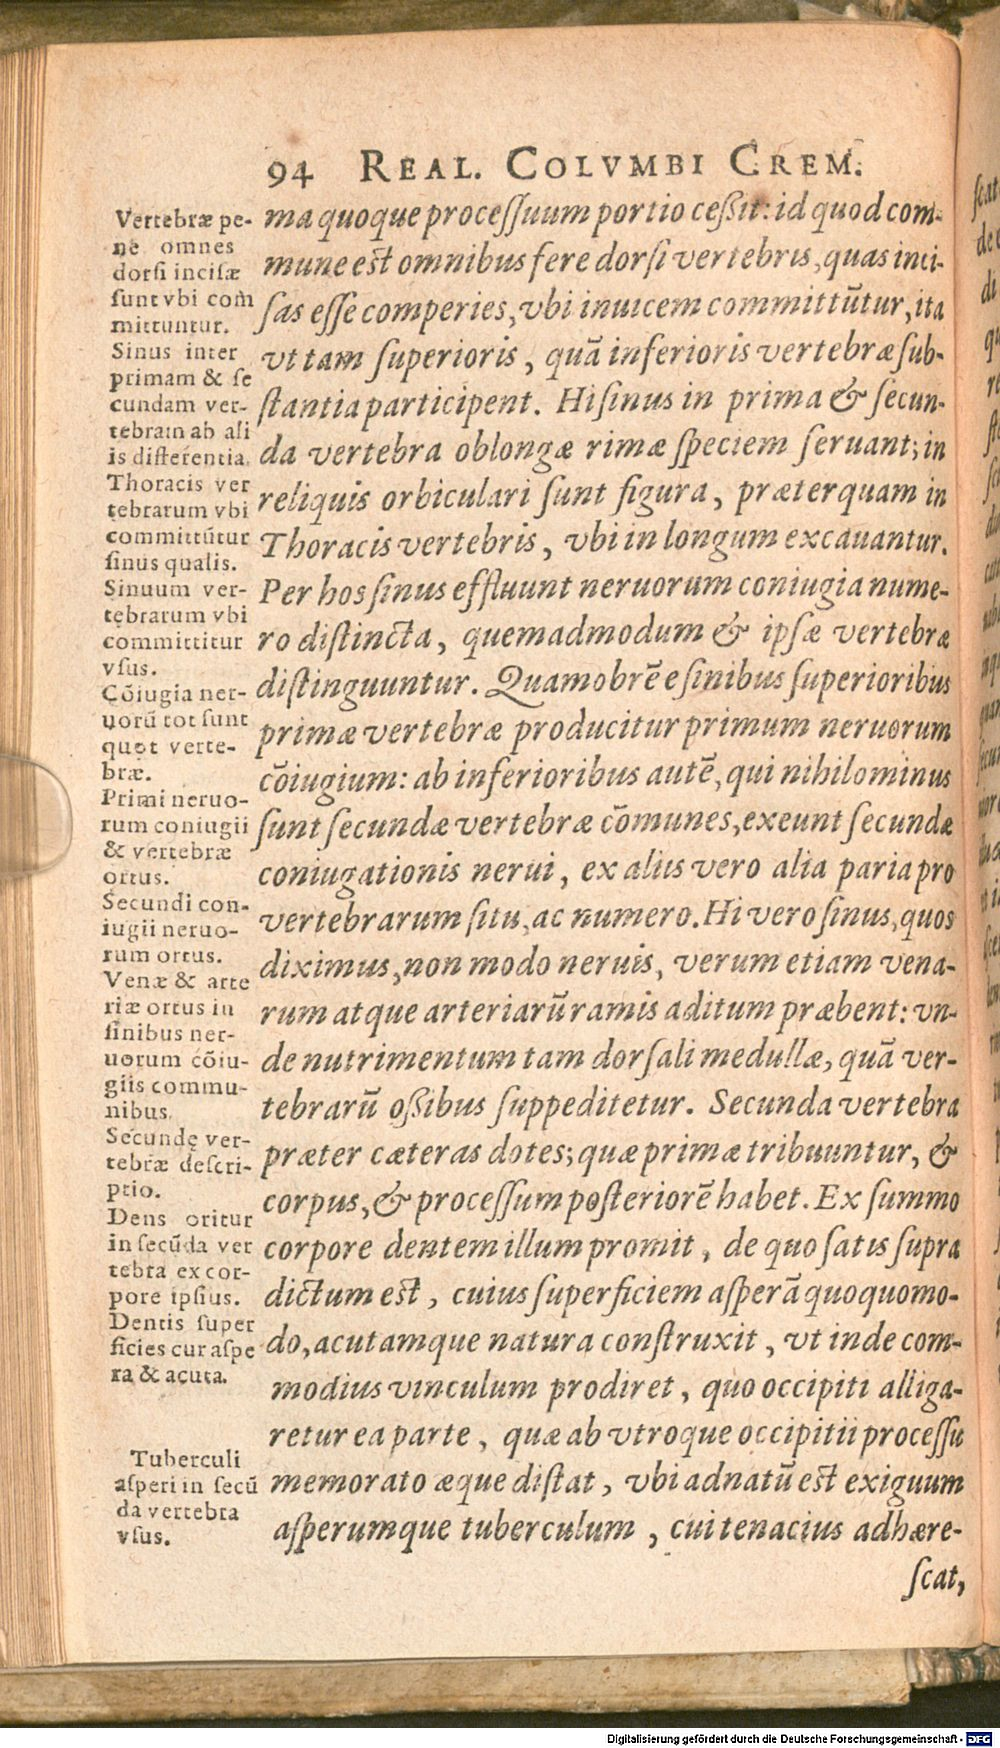 94 REAL. COLVMBI CREM.
Vertebræ pe-
nè omnes
dorsi incisæ
sunt vbi com
mittuntur.
Sinus inter
primam & se
cundam ver-
tebram ab ali
is differentia.
Thoracis ver
tebrarum vbi
committũtur
sinus qualis.
Sinuum ver-
tebrarum vbi
committitur
vsus.
Cõiugia ner-
uorũ tot sunt
quot verte-
bræ.
Primi neruo-
rum coniugii
& vertebræ
ortus.
Secundi con-
iugii neruo-
rum ortus.
Venæ & arte
riæ ortus in
sinibus ner-
uorum cõiu-
giis commu-
nibus.
Secundę ver-
tebræ descri-
ptio.
Dens oritur
in secũda ver
tebra ex cor-
pore ipsius.
Dentis super
ficies cur aspe
ra & acuta.
Tuberculi
asperi in secũ
da vertebra
vsus.
ma quoque processuum portio cessit: id quod com-
mune est omnibus fere dorsi vertebris, quas inci-
sas esse comperies, vbi inuicem committũtur, ita
vt tam superioris, quã inferioris vertebræ sub-
stantia participent. Hi sinus in prima & secun-
da vertebra oblongæ rimæ speciem seruant; in
reliquis orbiculari sunt figura, præterquam in
Thoracis vertebris, vbi in longum excauantur.
Per hos sinus effluunt neruorum coniugia nume-
ro distincta, quemadmodum & ipsæ vertebræ
distinguuntur. Quamobrẽ e sinibus superioribus
primæ vertebræ producitur primum neruorum
cõiugium: ab inferioribus autẽ, qui nihilominus
sunt secundæ vertebræ cõmunes, exeunt secundæ
coniugationis nerui, ex aliis vero alia paria pro
vertebrarum situ, ac numero. Hi vero sinus, quos
diximus, non modo neruis, verum etiam vena-
rum atque arteriarũ ramis aditum præbent: vn-
de nutrimentum tam dorsali medullæ, quã ver-
tebrarũ ossibus suppeditetur. Secunda vertebra
præter cæteras dotes; quæ primæ tribuuntur, &
corpus, & processum posteriorẽ habet. Ex summo
corpore dentem illum promit, de quo satis supra
dictum est, cuius superficiem asperã quoquomo-
do, acutamque natura construxit, vt inde com-
modius vinculum prodiret, quo occipiti alliga-
retur ea parte, quæ ab vtroque occipitii processu
memorato æque distat, vbi adnatũ est exiguum
asperumque tuberculum, cui tenacius adhære-
scat,
Digitalisierung gefördert durch die Deutsche Forschungsgemeinschaft - DFG